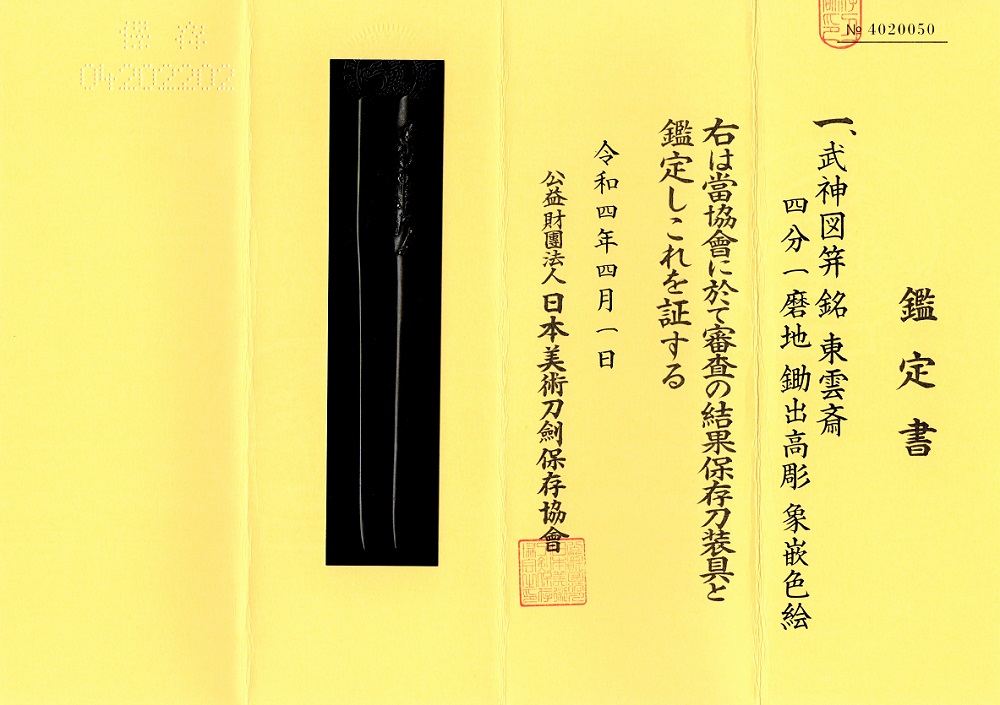 № 4020050
鑑定書
一、武神図笄 銘 東雲斎
四分一磨地 鋤出高彫 象嵌色絵
右は當協會に於て審査の結果保存刀装具と
鑑定しこれを証する
令和四年四月一日
公益財團法人 日本美術刀劍保存協會
保存
04202202